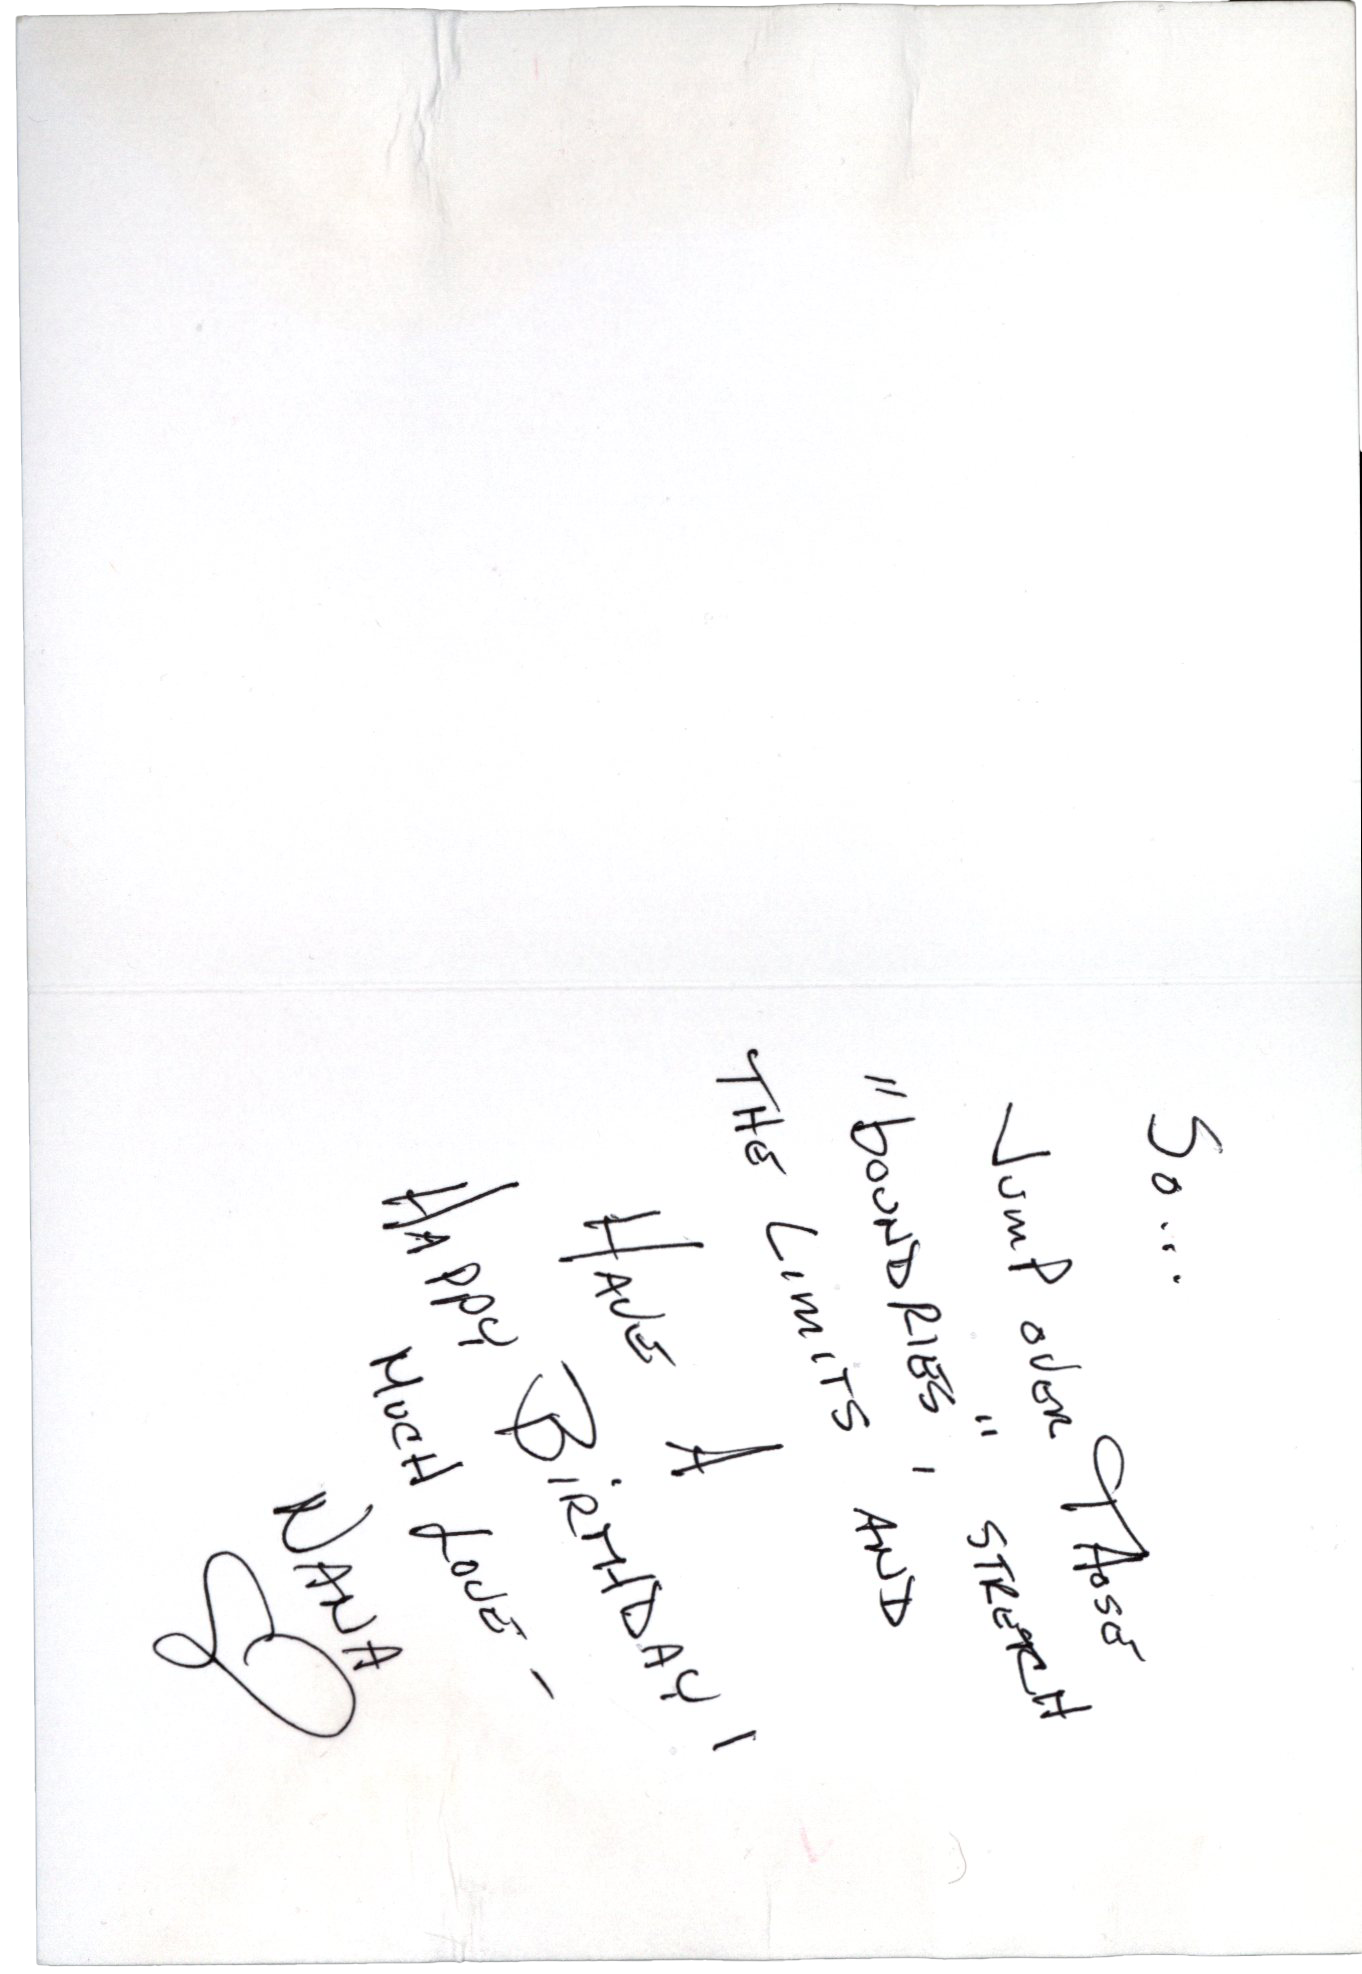 So...
Jump over Those
"boundries", STRETCH
THE LIMITS AND
HAVE A
HAPPY BIRTHDAY!
MUCH LOVE -
NANA